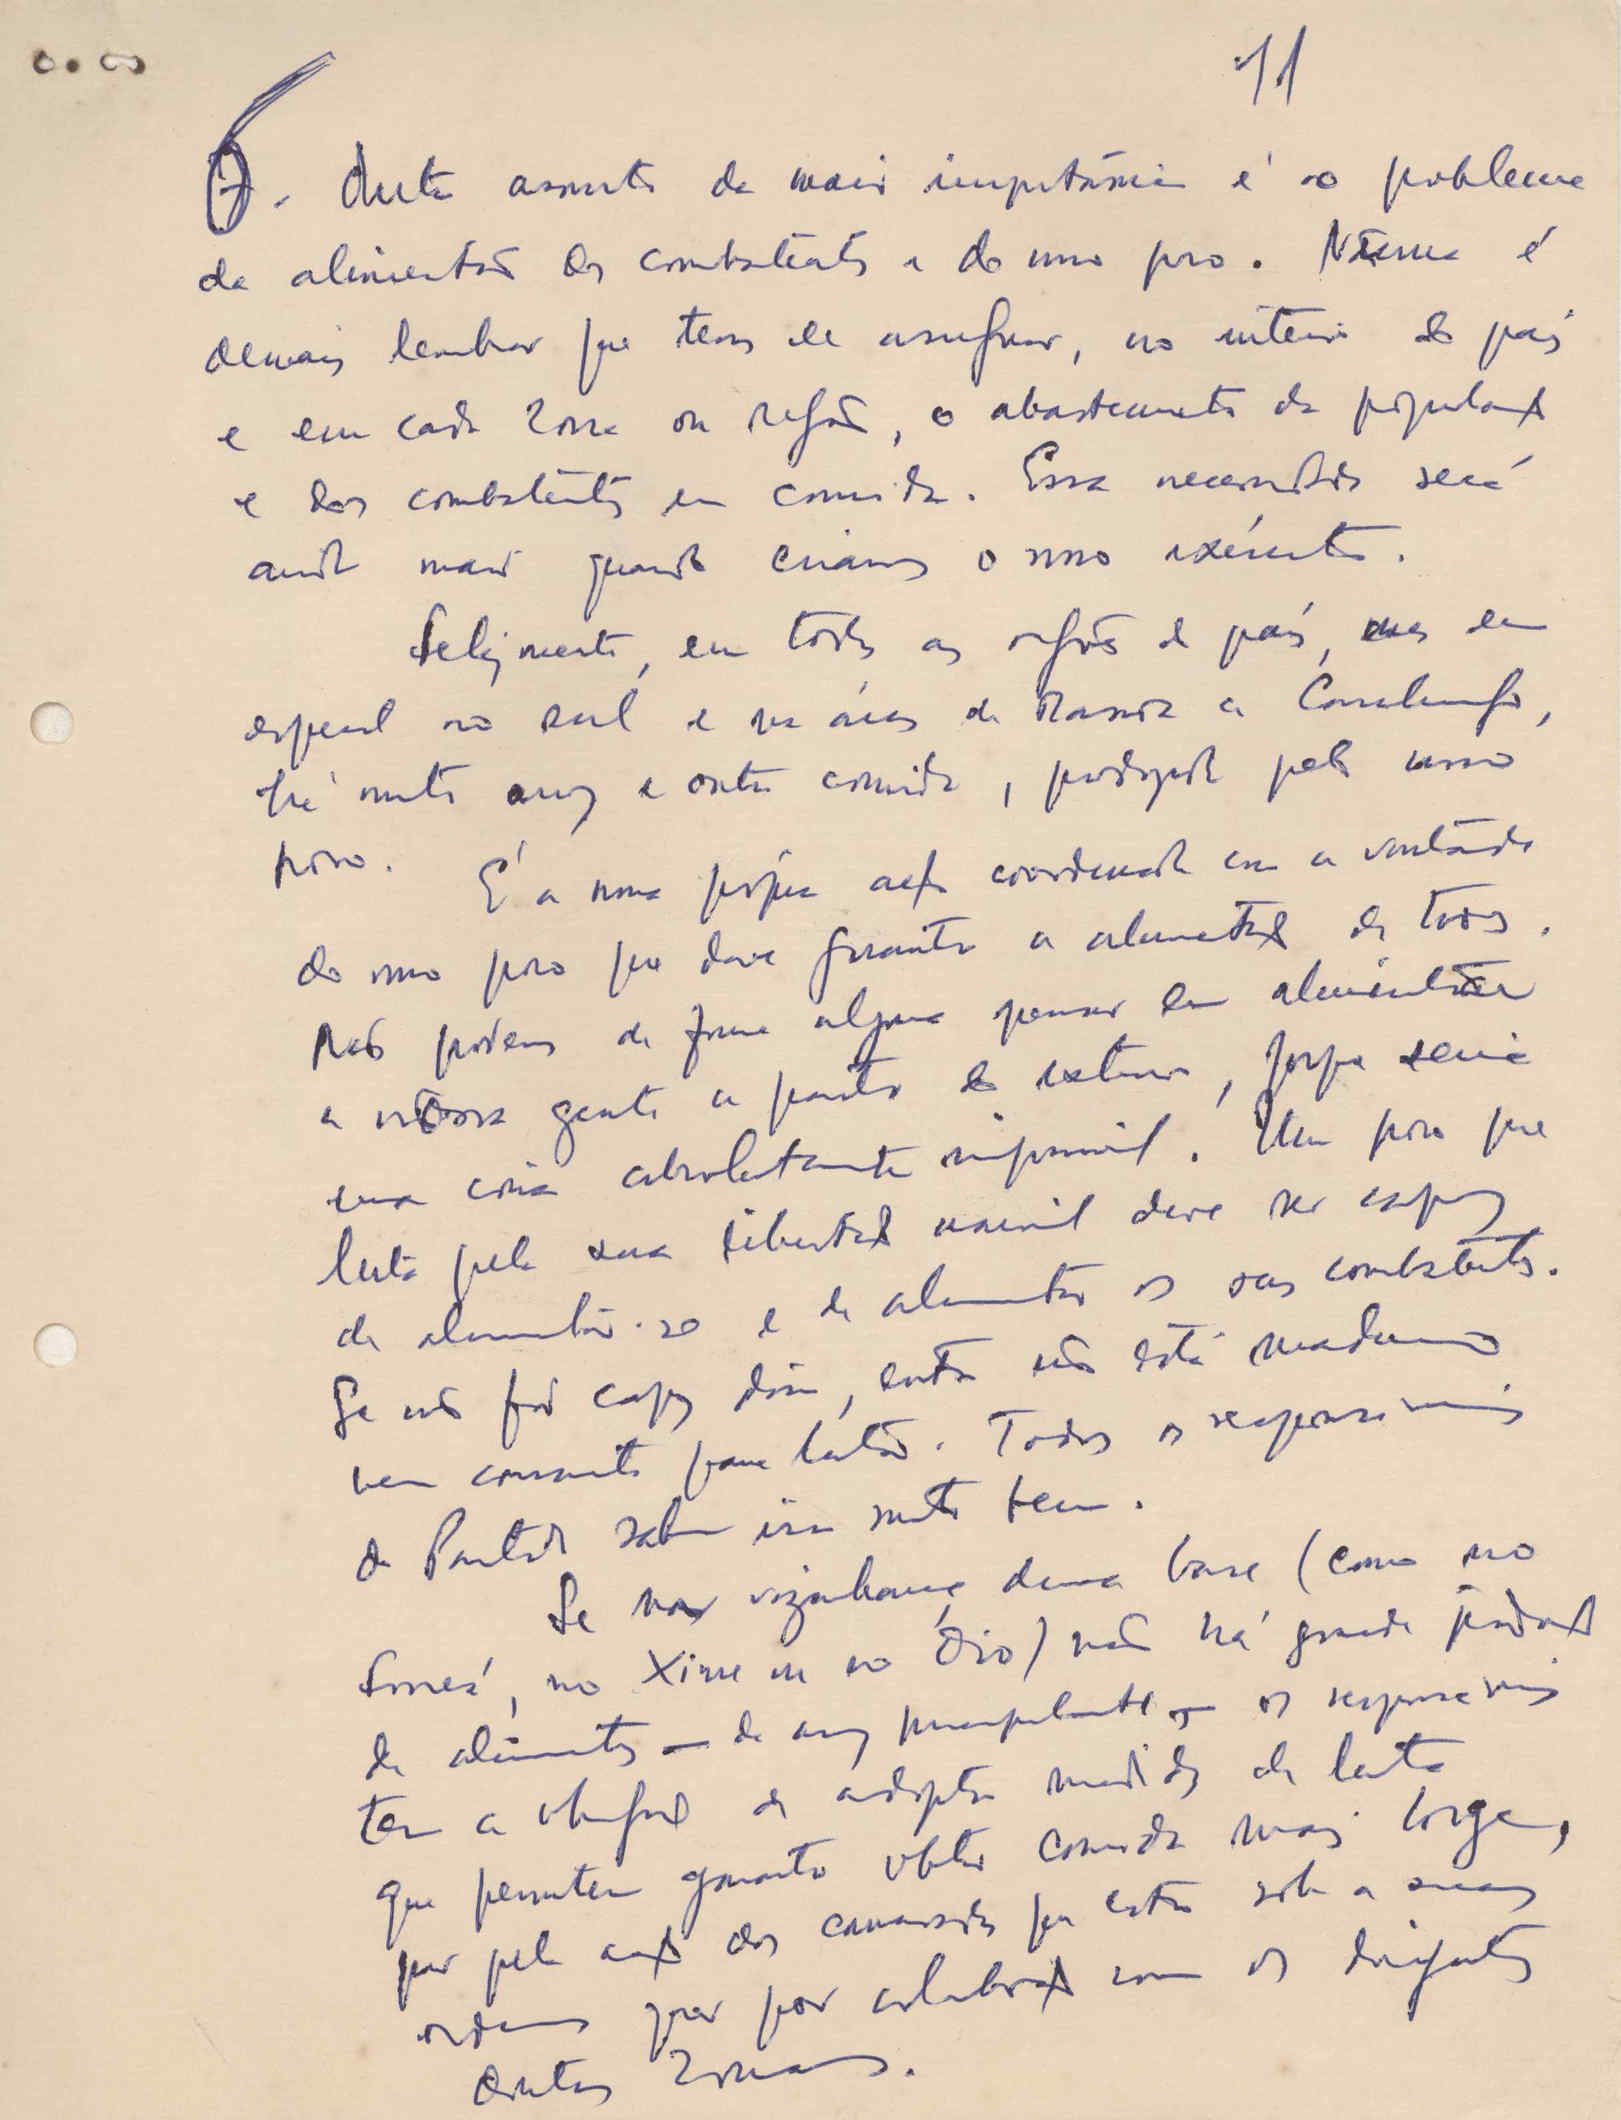 11
7. Outro assunto da maior importância é o problema
da alimentação dos combatentes e do nosso povo. Nunca é
demais lembrar que temos de assegurar, no interior do país
e em cada zona ou região, o abastecimento da população
e dos combatentes em comida. Essa necessidade será
ainda maior quando criarmos o nosso exército.
Felizmente, em todas as regiões do país, mas em
especial no sul e nas áreas de Mansoa a Canchungo,
há muito arroz e outra comida, produzida pelo nosso
povo. É a nossa própria acção coordenada com a vontade
do nosso povo que deve garantir a alimentação de todos.
Não podemos de forma alguma pensar em alimentar
a nossa gente a partir do exterior, porque seria
uma coisa absolutamente impossível. Um povo que
luta pela sua libertação nacional deve ser capaz
de alimentar-se e de alimentar os seus combatentes.
Se não for capaz disso, então não está maduro
nem consciente para lutar. Todos os responsáveis
do Partido sabem isso muito bem.
Se nas vizinhanças duma base (como no
Morés, no Xime ou no Oio) não há grande produção
de alimentos — de arroz principalmente — os responsáveis
têm a obrigação de adoptar medidas de luta
que permitem garantir obter comida mais longe,
quer pela acção dos camaradas que estão sob as suas
ordens quer por colaboração com os dirigentes
doutras zonas.